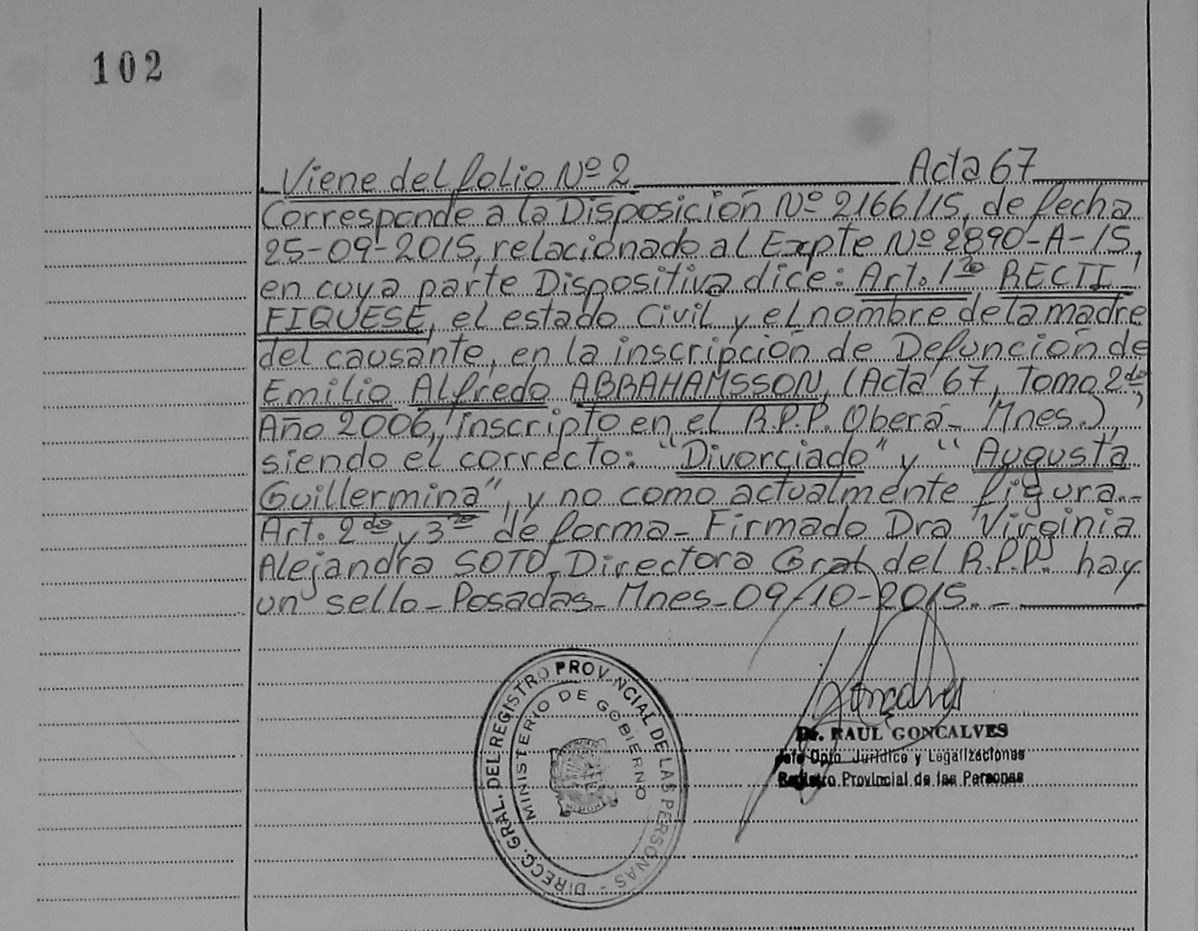 102
Viene del folio Nº 2 Acta 67
Corresponde a la Disposición Nº 2166/15, de fecha
25-09-2015, relacionado al Expte Nº 2890-A-15,
en cuya parte Dispositiva dice: Art. 1ro RECTI-
FIQUESE, el estado Civil y el nombre de la madre
del causante, en la inscripción de Defunción de
Emilio Alfredo ABRAHAMSSON, (Acta 67, Tomo 2do,
Año 2006, inscripto en el R.P.P. Oberá- Mnes.),
siendo el correcto: "Divorciado" y "Augusta
Guillermina", y no como actualmente figura.-
Art. 2do y 3ro de forma- Firmado Dra Virginia
Alejandra SOTO, Directora Gral del R.P.P. hay
un sello- Posadas- Mnes- 09-10-2015.-
DIRECC. GRAL. DEL REGISTRO PROVINCIAL DE LAS PERSONAS -
MINISTERIO DE GOBIERNO
Goncalves
Dr. RAUL GONCALVES
Jefe Dpto. Jurídico y Legalizaciones
Registro Provincial de las Personas